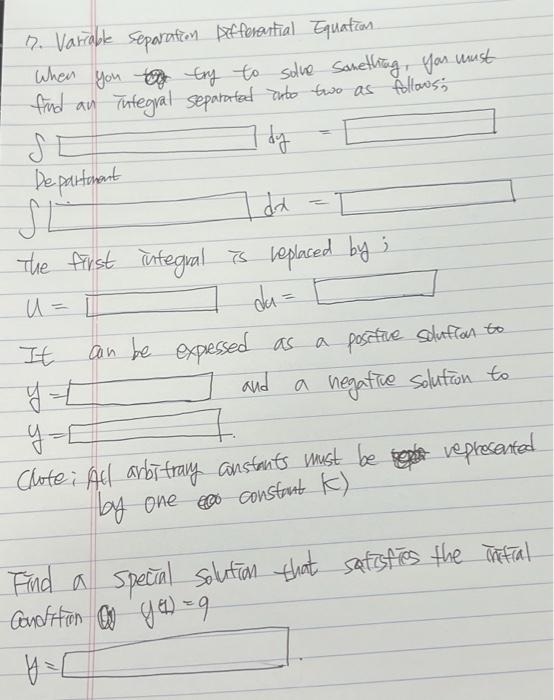 7. Variable Separation Differential Equation
When you try to solve something, you must
find an integral separated into two as follows;
∫ dy =
Department
∫ dx =
The first integral is replaced by ;
u = du =
It can be expressed as a positive solution to
y = and a negative solution to
y = .
(Note: All arbitrary constants must be represented
by one constant K)
Find a special solution that satisfies the initial
condition y(1) = 9
y = .